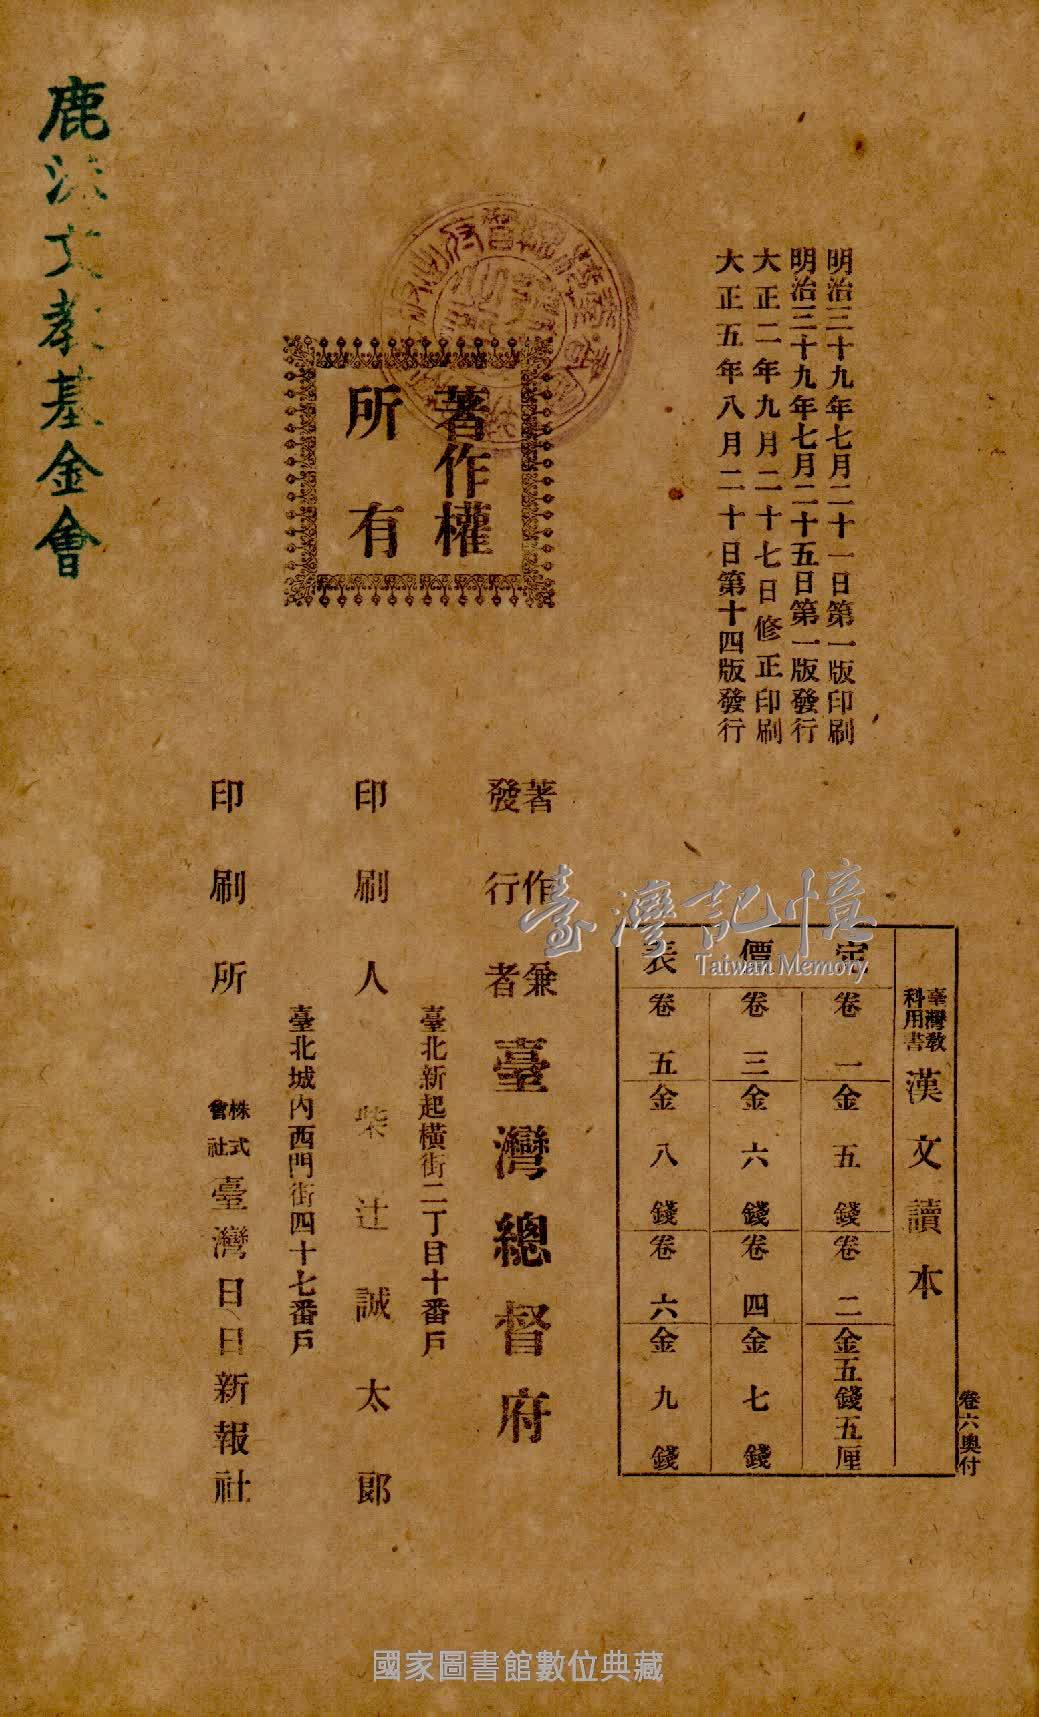 明治三十九年七月二十一日第一版印刷
明治三十九年七月二十五日第一版發行
大正二年九月二十七日修正印刷
大正五年八月二十日第十四版發行
著作權
所有
鹿港文教基金會
卷六奥付
臺灣教
科用書
漢文讀本
定價表
卷一 金五錢 卷二 金五錢五厘
卷三 金六錢 卷四 金七錢
卷五 金八錢 卷六 金九錢
著作兼
發行者
臺灣總督府
臺北新起橫街二丁目十番戶
印刷人 柴辻誠太郎
臺北城內西門街四十七番戶
印刷所
株式
會社
臺灣日日新報社
臺灣記憶
Taiwan Memory
國家圖書館數位典藏